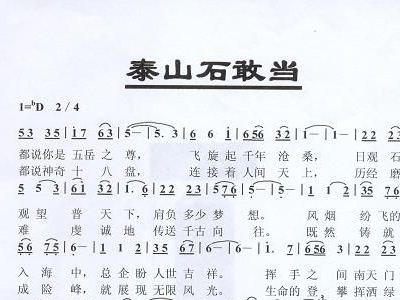 泰山石敢当
1=ᵇD 2/4
53 35 1 17 63 5 - 5. 3 6 6 i 656 32 1 - 1 - 22 23
都说你是 五岳 之 尊， 飞 旋 起 千年 沧 桑， 日观 石
都说神奇 十 八 盘， 连 接 着 人间 天 上， 历经 磨
5 5 63 i 32 5 - 5. 6 1. 2 35 22 2356 5 - 5 - i. 3 223
观 望 普 天 下， 肩负 多少 梦 想。 风 烟 纷飞的
难 虔 诚地 传送 千古 向 往。 既 然 铸 就
56 76 5 22 3 1.2 35 6 - 6 - i. 7 656 3 2 123
入 海 中， 总 企盼 人世 吉 祥。 挥 手 之 间 南天 门
成 险 峰， 就 展现 无限 风 光。 生命的 登， 攀 挥洒 绿